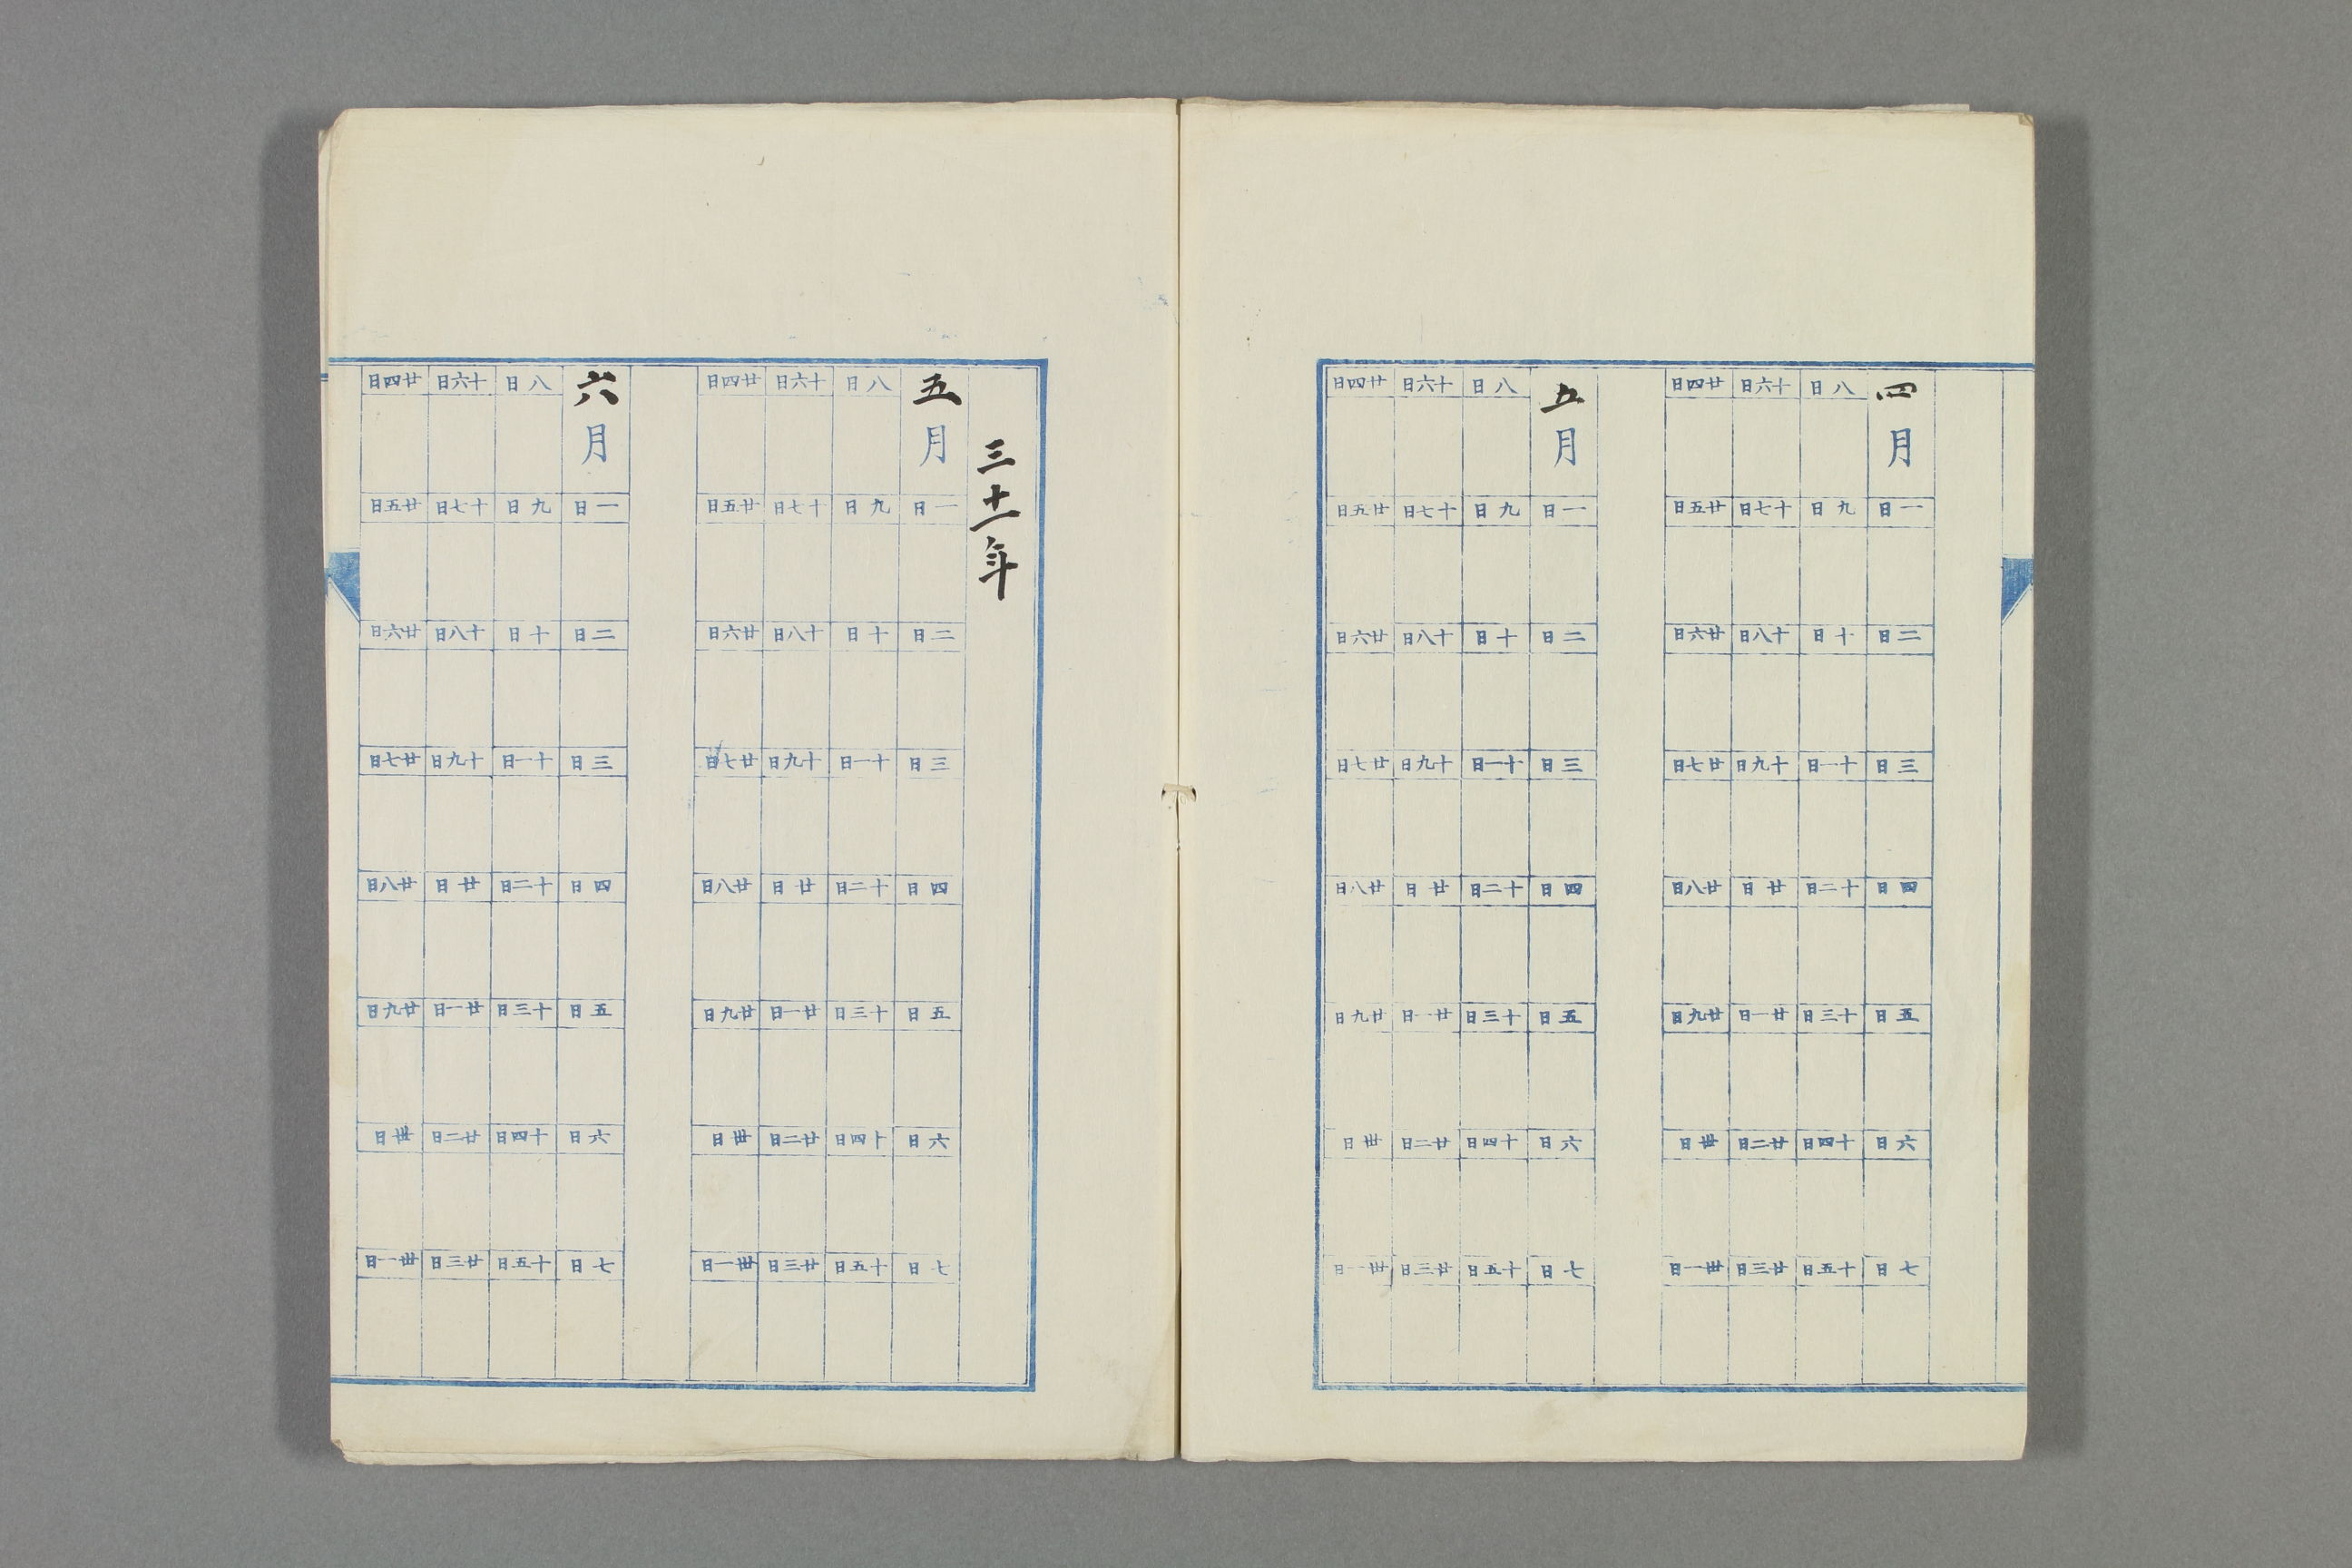 四月
一日
二日
三日
四日
五日
六日
七日
八日
九日
十日
十一日
十二日
十三日
十四日
十五日
十六日
十七日
十八日
十九日
廿日
廿一日
廿二日
廿三日
廿四日
廿五日
廿六日
廿七日
廿八日
廿九日
卅日
卅一日
五月
一日
二日
三日
四日
五日
六日
七日
八日
九日
十日
十一日
十二日
十三日
十四日
十五日
十六日
十七日
十八日
十九日
廿日
廿一日
廿二日
廿三日
廿四日
廿五日
廿六日
廿七日
廿八日
廿九日
卅日
卅一日
三十一年
五月
一日
二日
三日
四日
五日
六日
七日
八日
九日
十日
十一日
十二日
十三日
十四日
十五日
十六日
十七日
十八日
十九日
廿日
廿一日
廿二日
廿三日
廿四日
廿五日
廿六日
廿七日
廿八日
廿九日
卅日
卅一日
六月
一日
二日
三日
四日
五日
六日
七日
八日
九日
十日
十一日
十二日
十三日
十四日
十五日
十六日
十七日
十八日
十九日
廿日
廿一日
廿二日
廿三日
廿四日
廿五日
廿六日
廿七日
廿八日
廿九日
卅日
卅一日